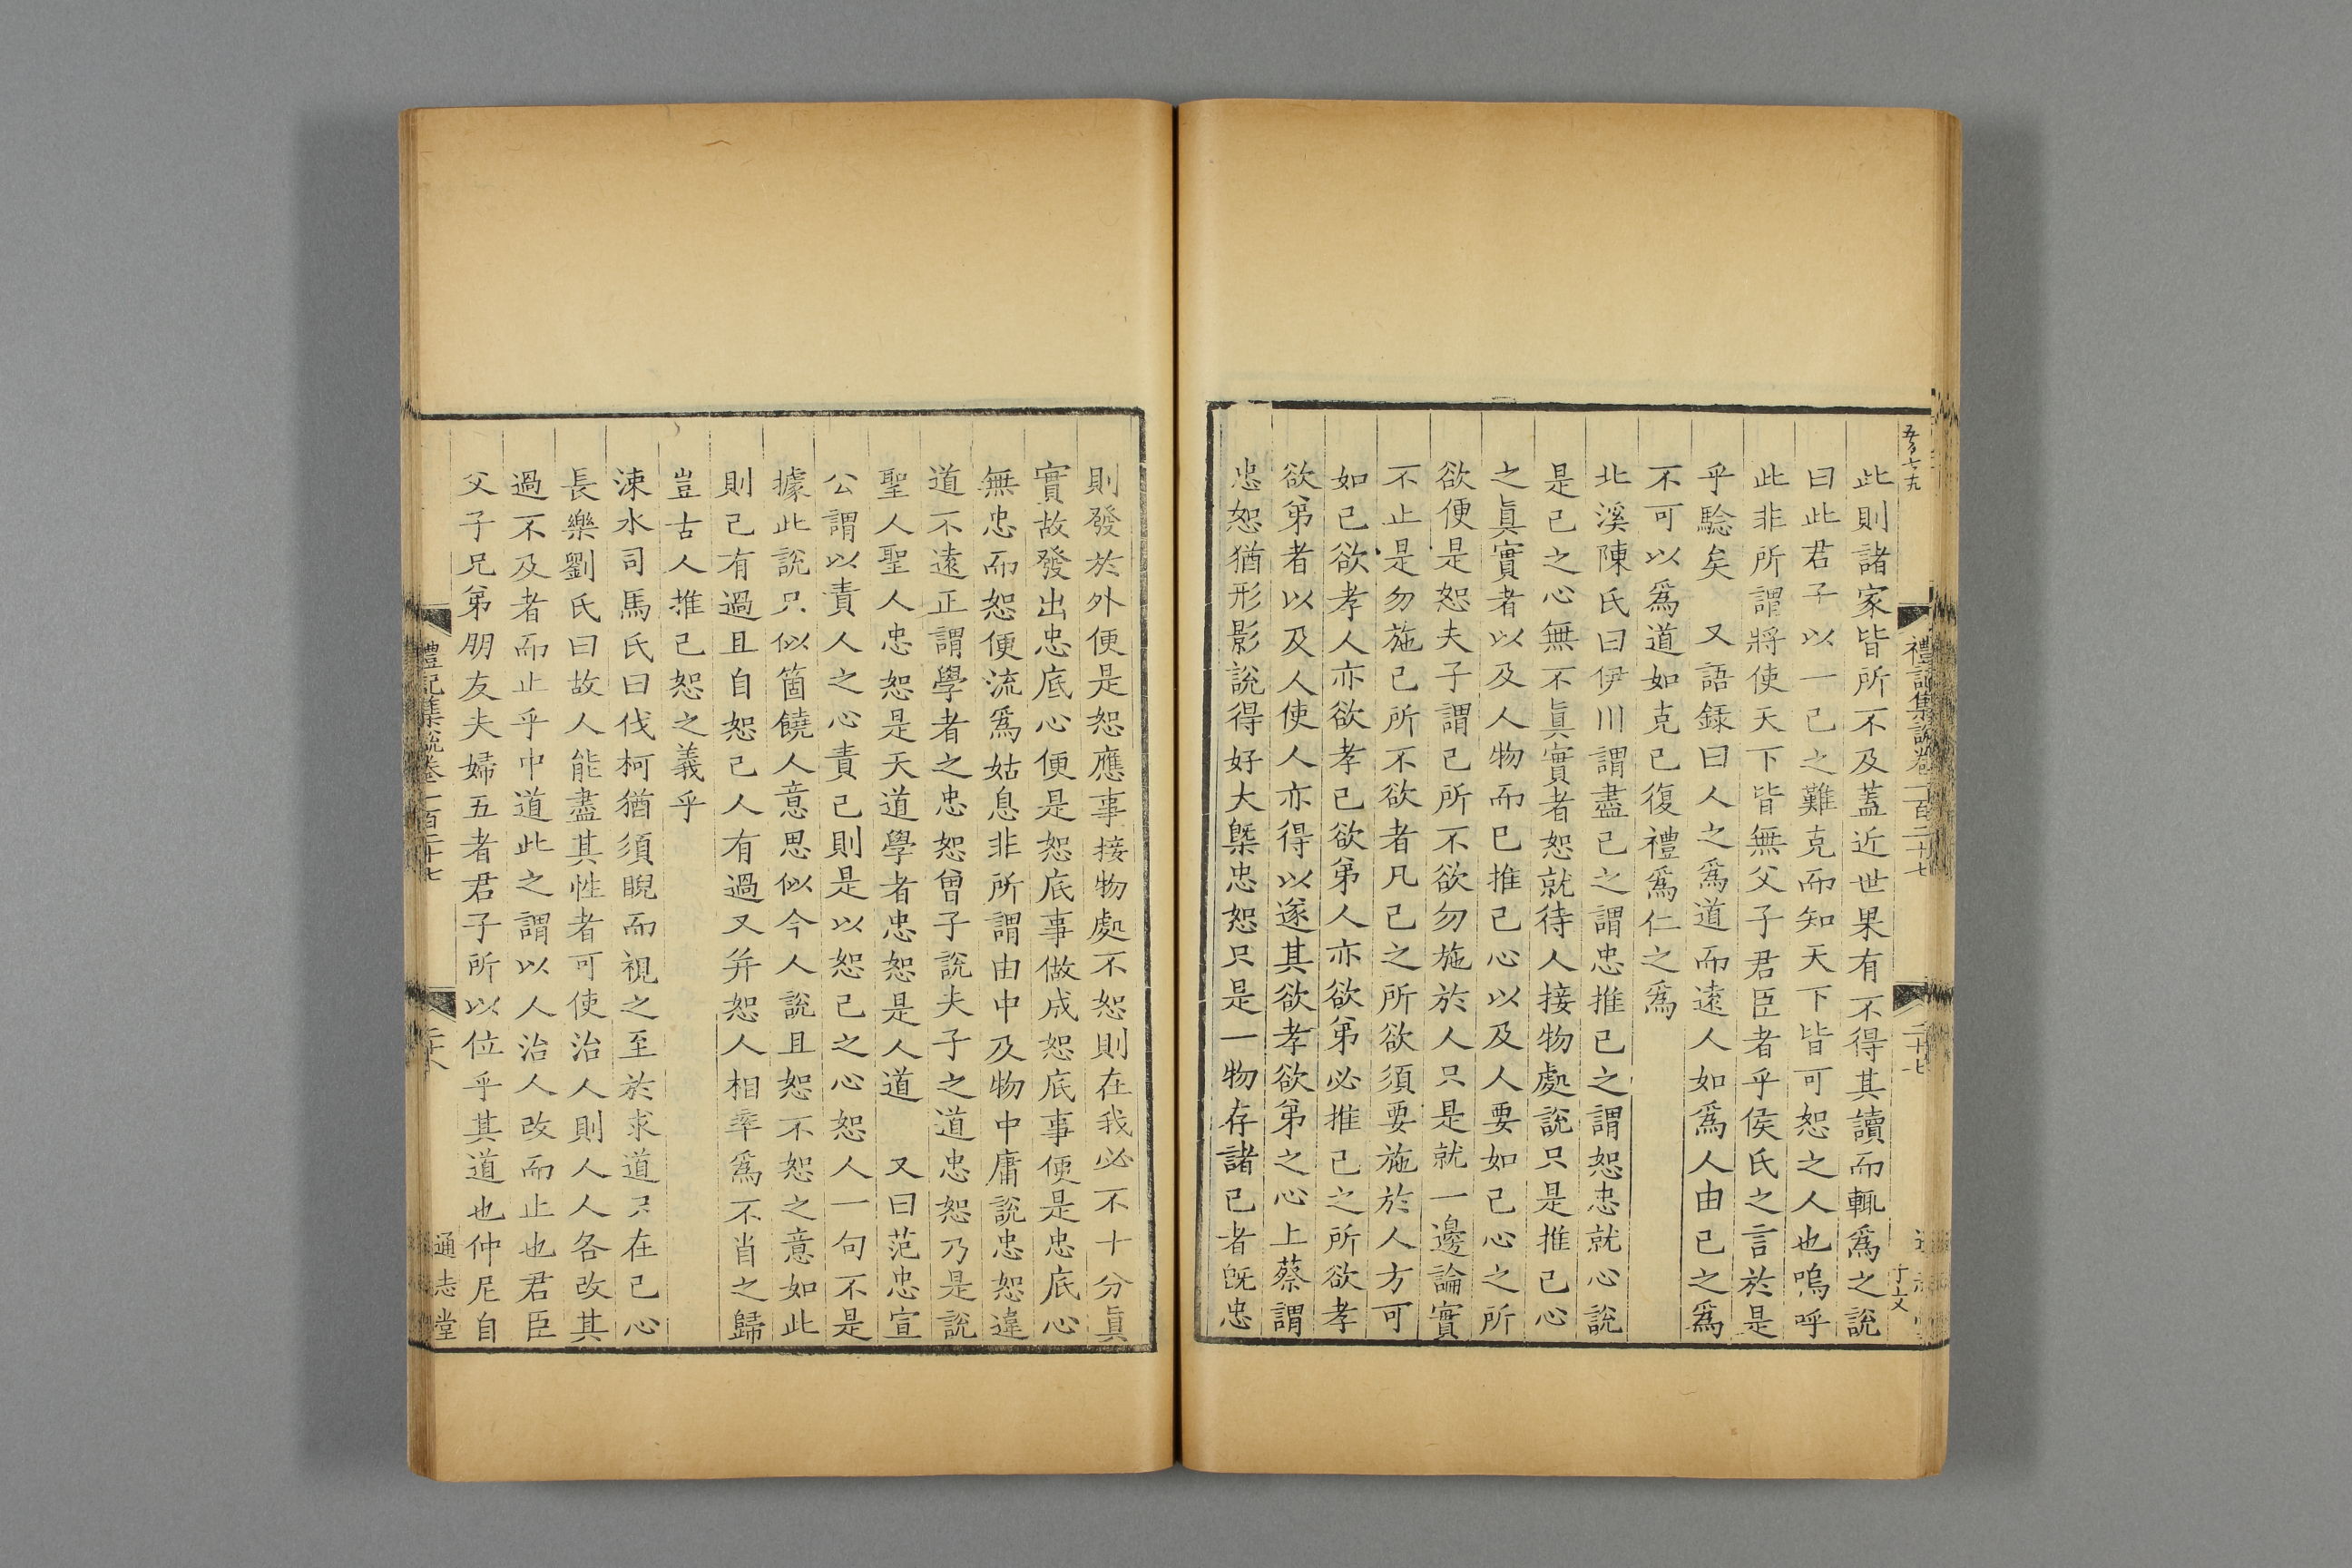 此則諸家皆所不及蓋近世果有不得其讀而輒爲之說
曰此君子以一己之難克而知天下皆可恕之人也嗚呼
此非所謂將使天下皆無父子君臣者乎侯氏之言於是
乎驗矣 又語錄曰人之爲道而遠人如爲人由己之爲
不可以爲道如克己復禮爲仁之爲
北溪陳氏曰伊川謂盡己之謂忠推己之謂恕忠就心說
是己之心無不眞實者恕就待人接物處說只是推己心
之眞實者以及人物而已推己心以及人要如己心之所
欲便是恕夫子謂己所不欲勿施於人只是就一邊論實
不止是勿施己所不欲者凡己之所欲須要施於人方可
如己欲孝人亦欲孝己欲弟人亦欲弟必推己之所欲孝
欲弟者以及人使人亦得以遂其欲孝欲弟之心上蔡謂
忠恕猶形影說得好大槩忠恕只是一物存諸己者旣忠
禮記集說卷一百二十七
二十七
則發於外便是恕應事接物處不恕則在我必不十分眞
實故發出忠底心便是恕底事做成恕底事便是忠底心
無忠而恕便流爲姑息非所謂由中及物中庸說忠恕違
道不遠正謂學者之忠恕曾子說夫子之道忠恕乃是說
聖人聖人忠恕是天道學者忠恕是人道 又曰范忠宣
公謂以責人之心責己則是以恕己之心恕人一句不是
據此說只似箇饒人意思似今人說且恕不恕之意如此
則己有過且自恕己人有過又并恕人相率爲不肖之歸
豈古人推己恕之義乎
涑水司馬氏曰伐柯猶須睨而視之至於求道只在己心
長樂劉氏曰故人能盡其性者可使治人則人人各改其
過不及者而止乎中道此之謂以人治人改而止也君臣
父子兄弟朋友夫婦五者君子所以位乎其道也仲尼自
禮記集說卷一百二十七
二十八
通志堂